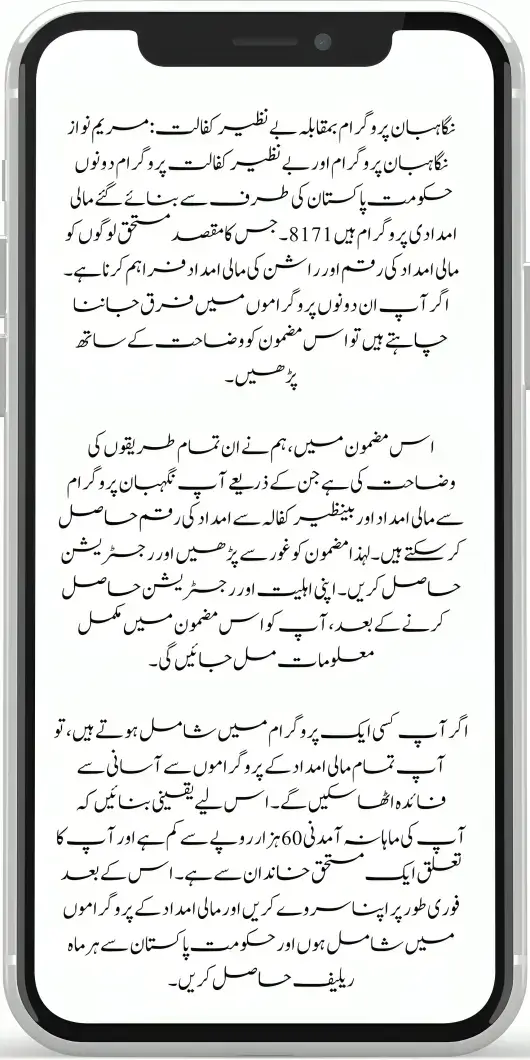 نگاہبان پروگرام بمقابلہ بے نظیر کفالت: مریم نواز
نگاہبان پروگرام اور بے نظیر کفالت پروگرام دونوں
حکومت پاکستان کی طرف سے بنائے گئے مالی
امدادی پروگرام ہیں 8171۔ جس کا مقصد مستحق لوگوں کو
مالی امداد کی رقم اور راشن کی مالی امداد فراہم کرنا ہے۔
اگر آپ ان دونوں پروگراموں میں فرق جاننا
چاہتے ہیں تو اس مضمون کو وضاحت کے ساتھ
پڑھیں۔
اس مضمون میں، ہم نے ان تمام طریقوں کی
وضاحت کی ہے جن کے ذریعے آپ نگہبان پروگرام
سے مالی امداد اور بینظیر کفالہ سے امداد کی رقم حاصل
کر سکتے ہیں۔ لہذا مضمون کو غور سے پڑھیں اور رجسٹریشن
حاصل کریں۔ اپنی اہلیت اور رجسٹریشن حاصل
کرنے کے بعد، آپ کو اس مضمون میں مکمل
معلومات مل جائیں گی۔
اگر آپ کسی ایک پروگرام میں شامل ہوتے ہیں، تو
آپ تمام مالی امداد کے پروگراموں سے آسانی سے
فائدہ اٹھا سکیں گے۔ اس لیے یقینی بنائیں کہ
آپ کی ماہانہ آمدنی 60 ہزار روپے سے کم ہے اور آپ کا
تعلق ایک مستحق خاندان سے ہے۔ اس کے بعد
فوری طور پر اپنا سروے کریں اور مالی امداد کے پروگراموں
میں شامل ہوں اور حکومت پاکستان سے ہر ماہ
ریلیف حاصل کریں۔